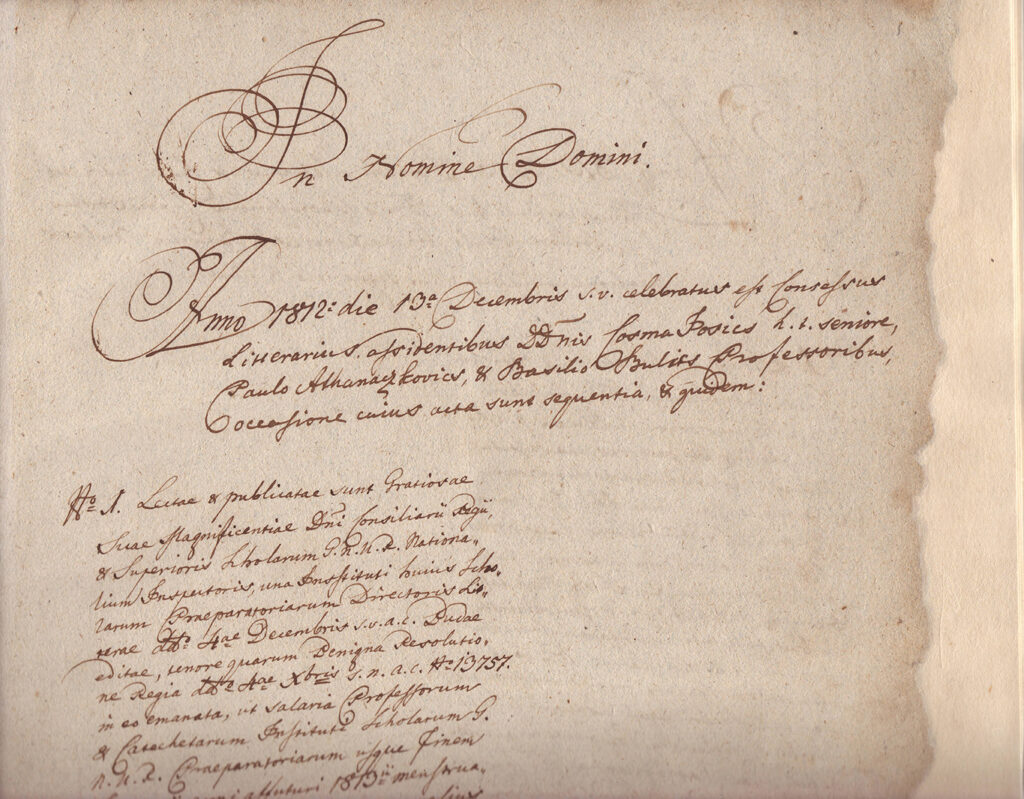 In Nomine Domini.
Anno 1812: die 13a Decembris s.v. celebratus est Consessus
Litterarius. assidentibus DDnis Cosma Josics h.t. seniore,
Paulo Athanaczkovics, & Basilio Bulics Professoribus,
occasione cuius acta sunt sequentia, & quidem:
No 1. Lectae & publicatae sunt Gratiosae
Suae Magnificentiae Dni Consiliarii Regii,
& Superioris Scholarum G.n.U.R. Nationa„
lium Inspectoris, una Instituti huius Scho„
larum Praeparatoriarum Directoris Lit„
terae ddto 4ae Decembris s.v.a.c. Budae
editae, tenore quarum Benigna Resolutio„
ne Regia ddto 4ae Xbris s.n.a.c. No 13757.
in eo emanata, ut salaria Professorum
& Catechetarum Instituti Scholarum G.
n.U.R. Praeparatoriarum usque Finem
affuturi 1813ii menstrua„